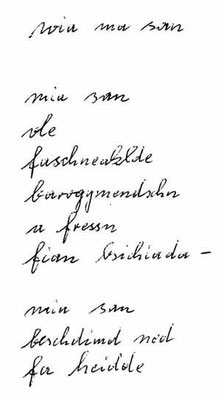 wia ma san
mia san
ole
faschneaklde
baroggmendschn
a fressn
fian
mia san
beschdimd ned
fa heidde